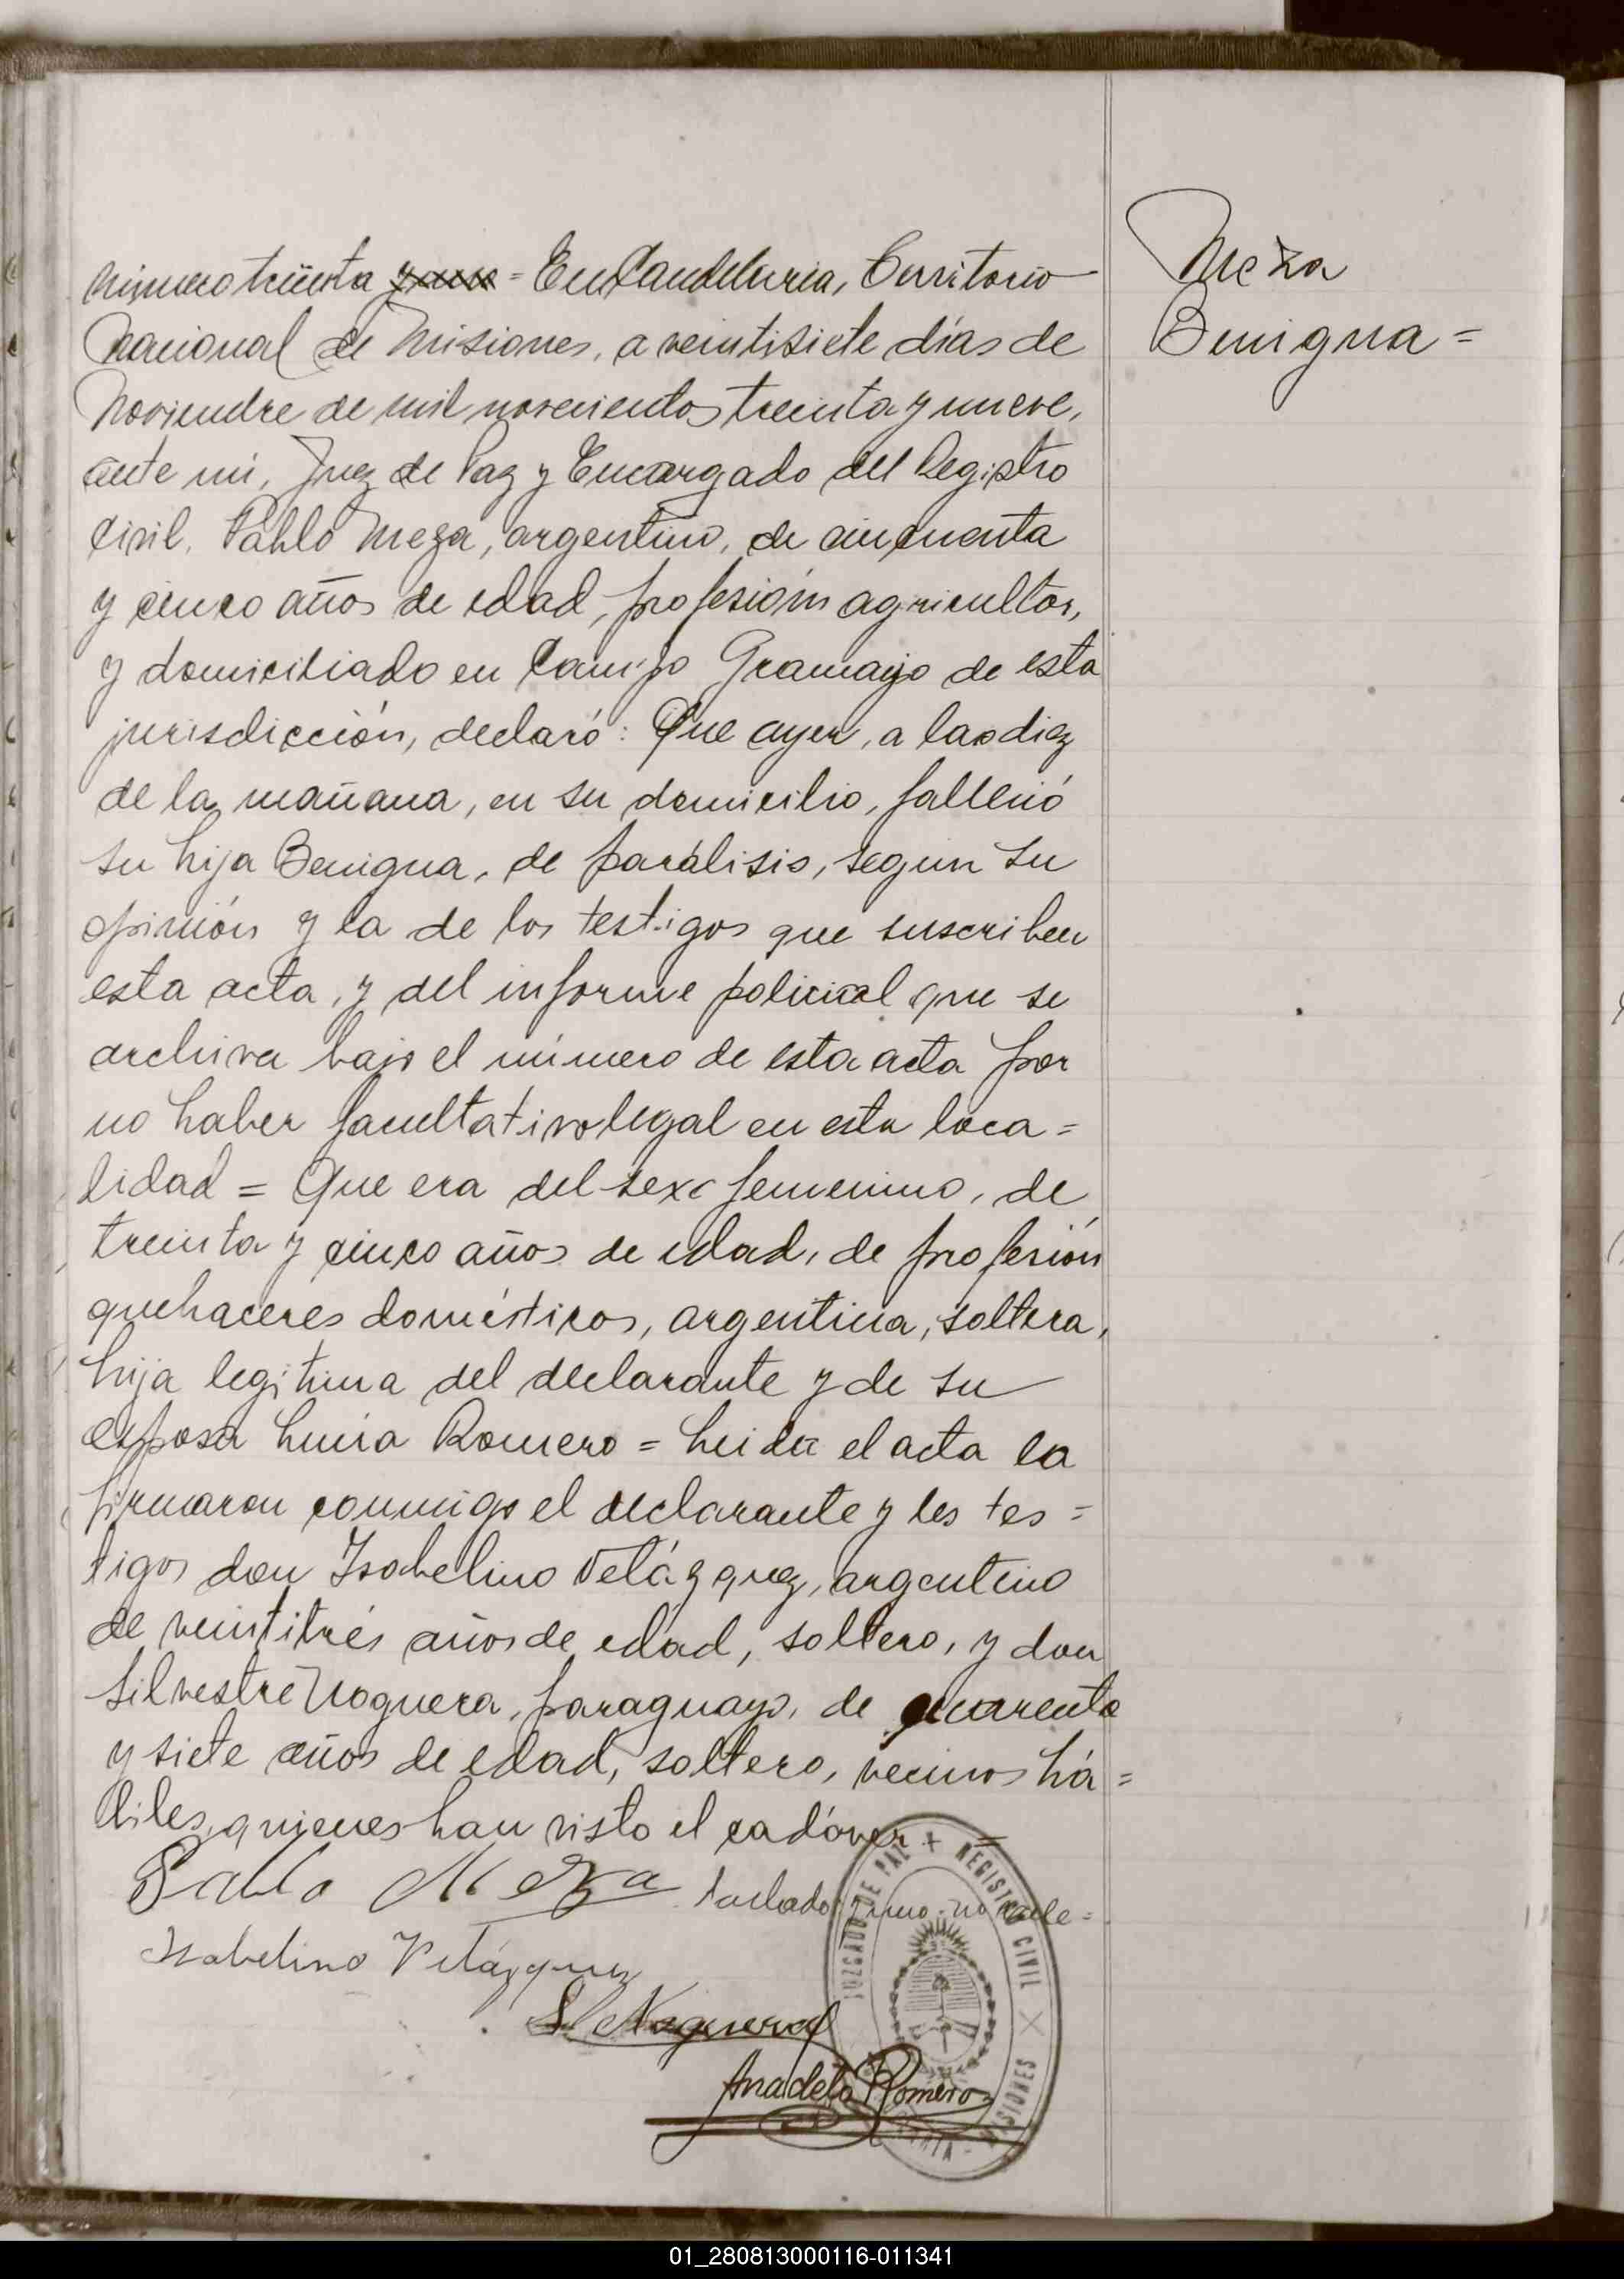 Número treinta y uno = En Candelaria, Territorio
Nacional de Misiones, a veintisiete días de
Noviembre de mil novecientos treinta y nueve,
ante mí, Juez de Paz y Encargado del Registro
Civil, Pablo Meza, argentino, de cincuenta
y cinco años de edad, profesión agricultor,
y domiciliado en Campo Gramajo de esta
jurisdicción, declaró: Que ayer, a las diez
de la mañana, en su domicilio, falleció
su hija Benigna, de parálisis, segun su
opinión y la de los testigos que suscriben
esta acta, y del informe policial que se
archiva bajo el número de esta acta por
no haber facultativo legal en esta loca=
lidad = Que era del sexo femenino, de
treinta y cinco años de edad, de profesión
quehaceres domésticos, argentina, soltera,
hija legitima del declarante y de su
esposa Lucia Romero = Leida el acta la
firmaron conmigo el declarante y los tes=
tigos don Isabelino Velázquez, argentino
de veintitrés años de edad, soltero, y don
Silvestre Noguera, paraguayo, de cuarenta
y siete años de edad, soltero, vecinos há=
biles, quienes han visto el cadáver. =
Pablo Meza Tachado: y uno. no vale=
Isabelino Velázquez
S. Noguera
Romero
JUZGADO DE PAZ + REGISTRO CIVIL
MISIONES
Meza
Benigna =
01_280813000116-011341